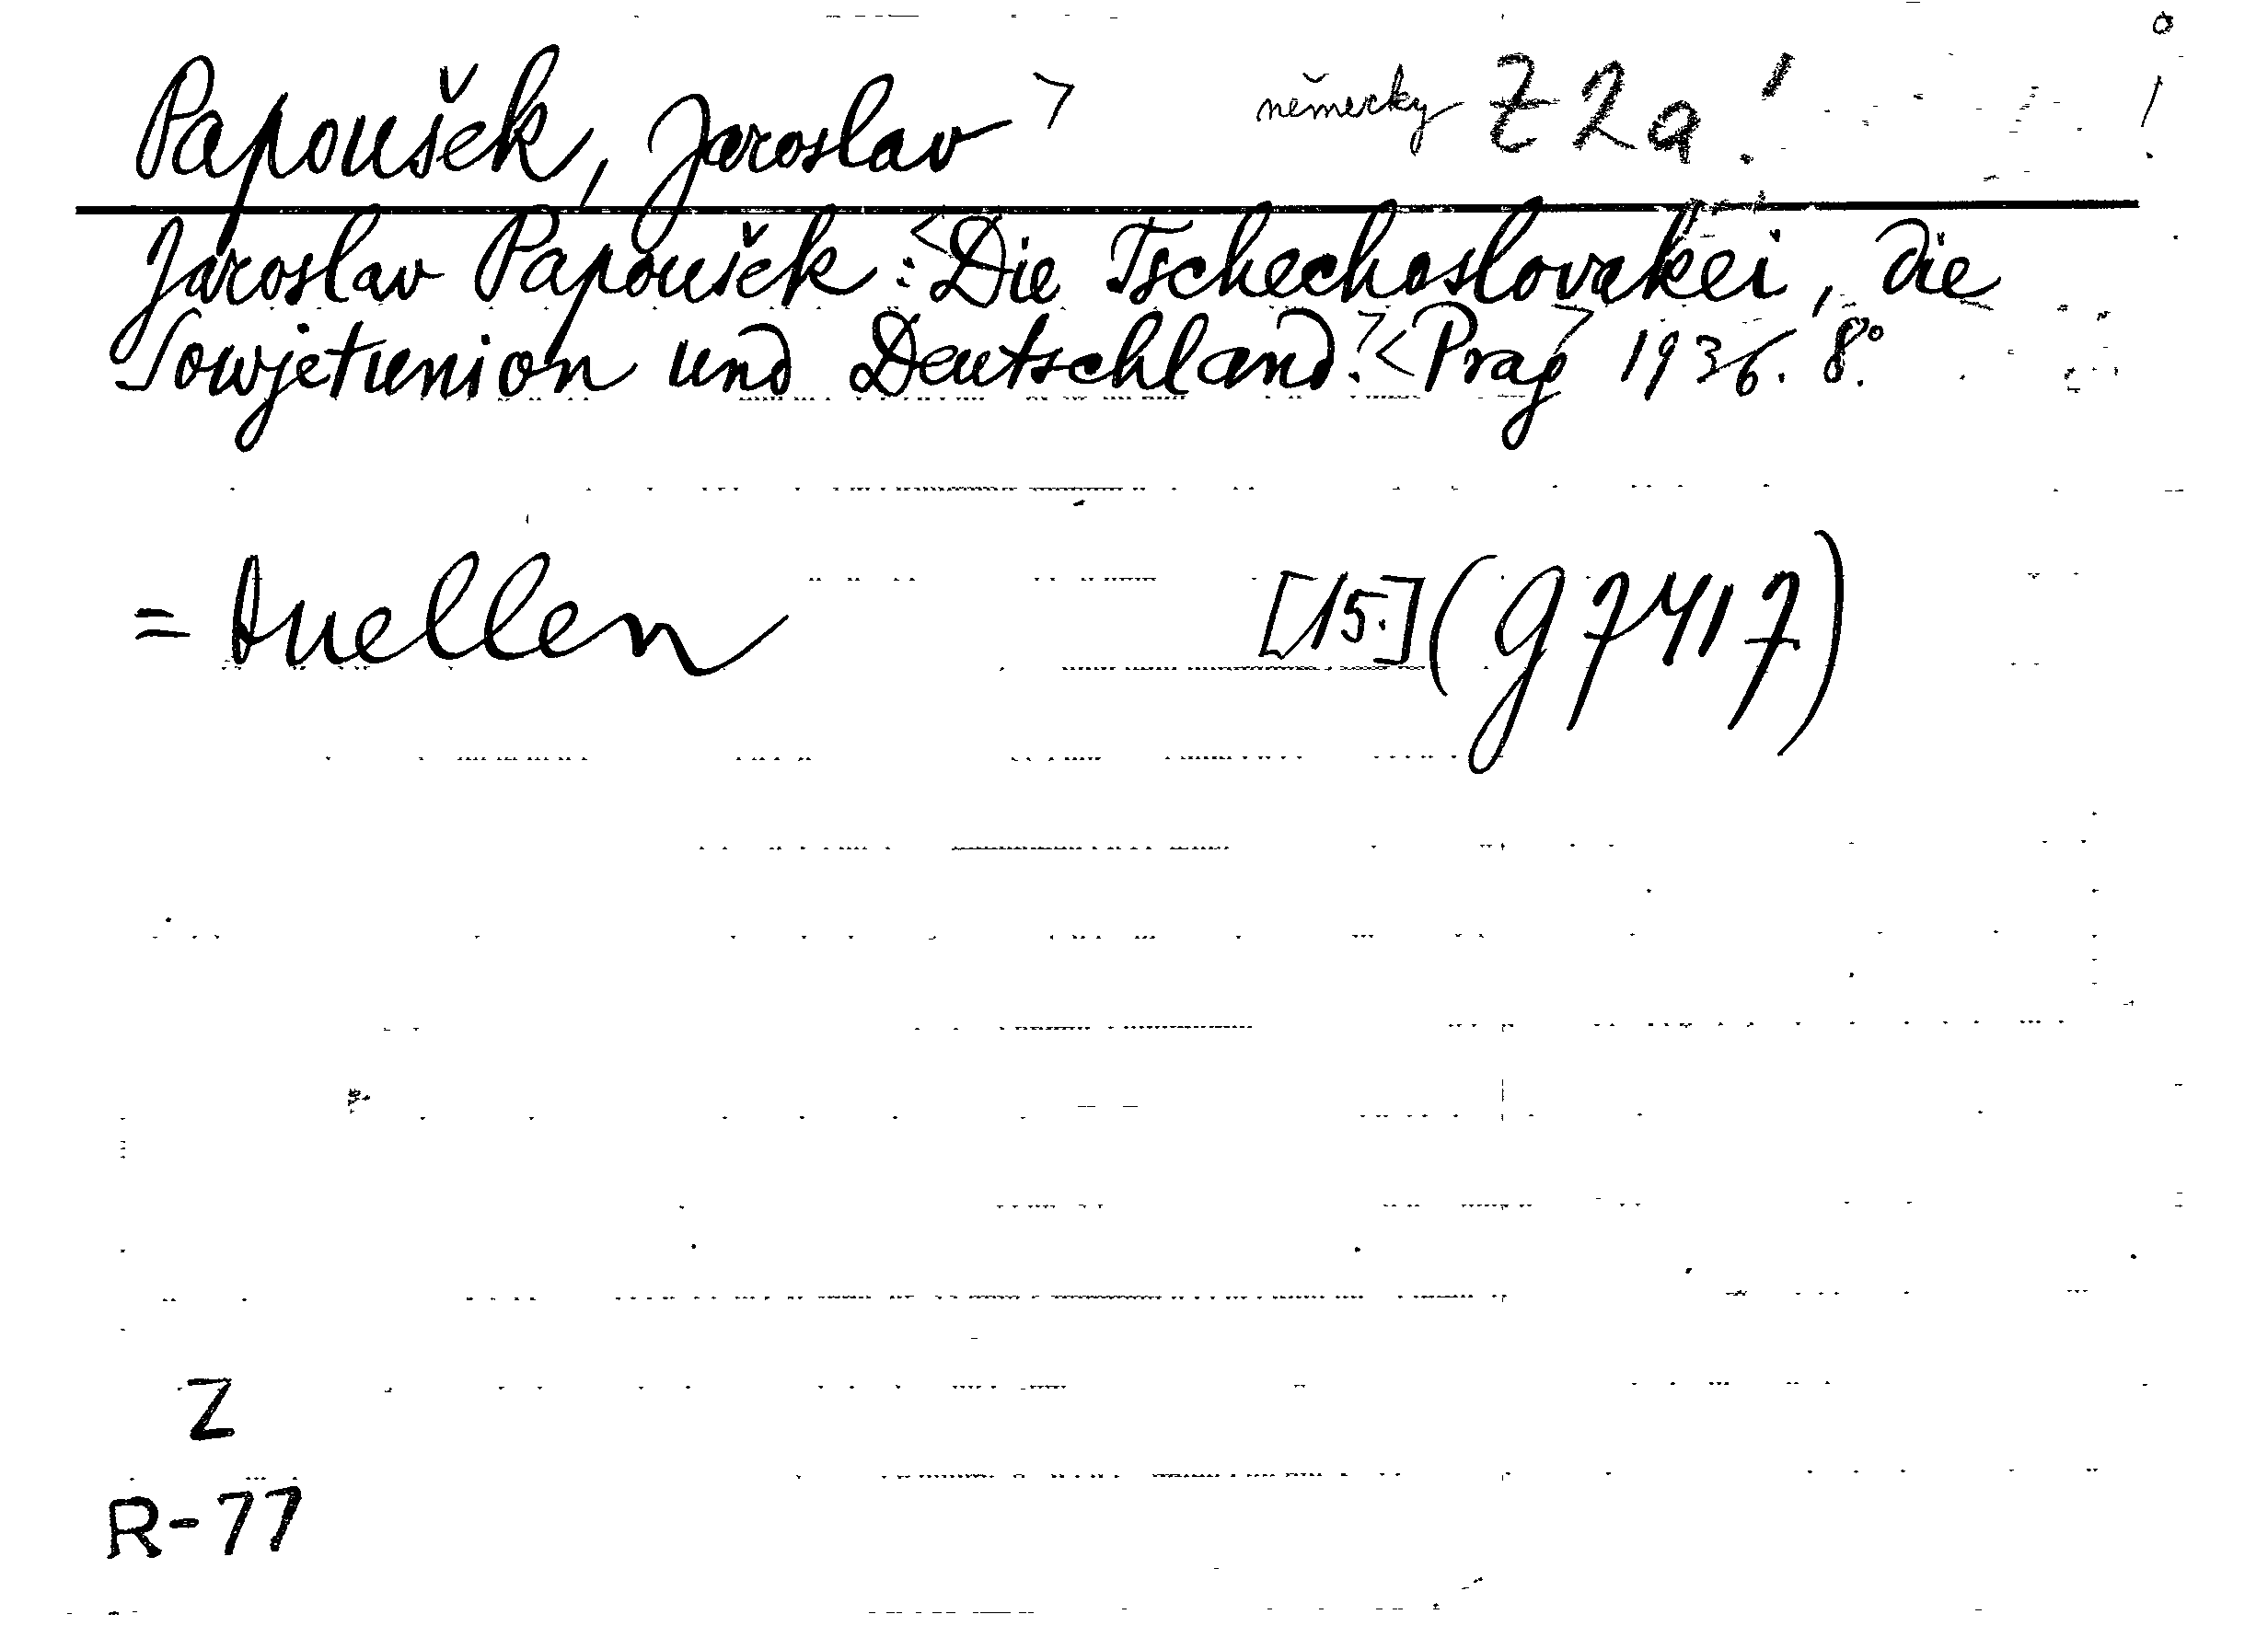 Papoušek, Jaroslav> německy Z 2a!
Jaroslav Papoušek: <Die Tschechoslovakei, die
Sowjetunion und Deutschland.> <Prag> 1936. 8°.
= Quellen [15.] (g 7417)
Z
R-77